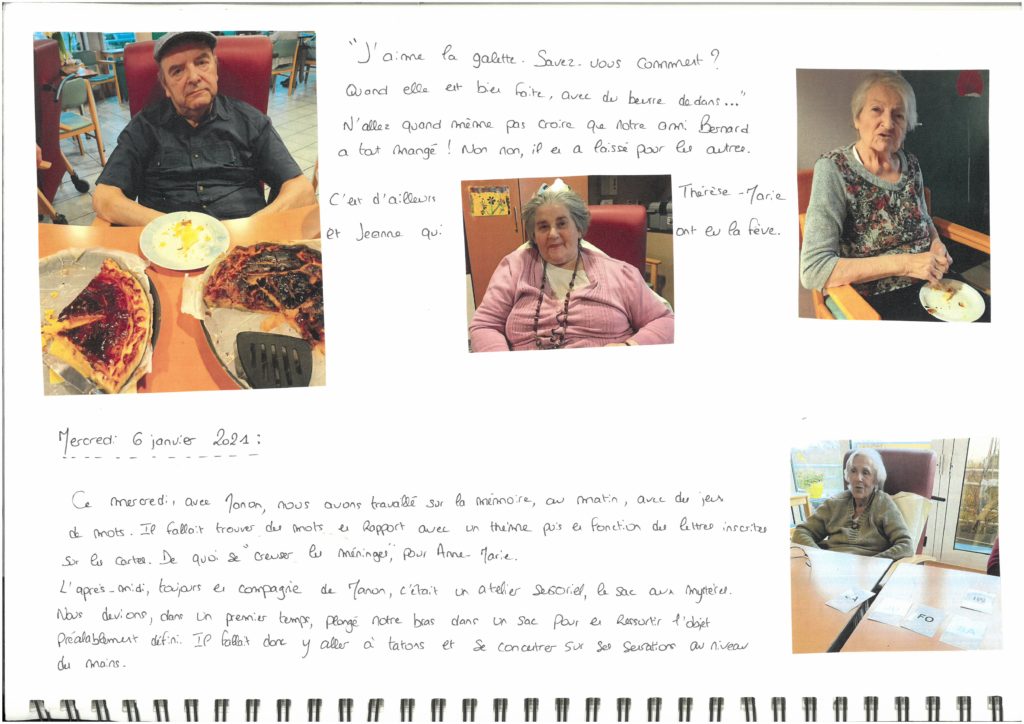 "J'aime la galette. Savez-vous comment?
Quand elle est bien faite, avec du beurre dedans..."
N'allez quand même pas croire que notre ami Bernard
a tout mangé! Non non, il en a laissé pour les autres.
C'est d'ailleurs Thérèse-Marie
et Jeanne qui ont eu la fève.
Mercredi 6 janvier 2021:
Ce mercredi, avec Manon, nous avons travaillé sur la mémoire, au matin, avec des jeux
de mots. Il fallait trouver des mots en rapport avec un thème puis en fonction des lettres inscrites
sur les cartes. De quoi se "creuser les méninges", pour Anne-Marie.
L'après-midi, toujours en compagnie de Manon, c'était un atelier sensoriel, le sac aux mystères.
Nous devions, dans un premier temps, plongé notre bras dans un sac pour en ressortir l'objet
préalablement défini. Il fallait donc y aller à tatons et se concentrer sur ses sensations au niveau
des mains.
FO